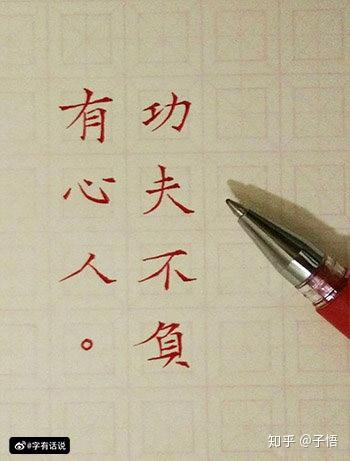 功夫不負
有心人。
#字有话说
知乎 @子悟